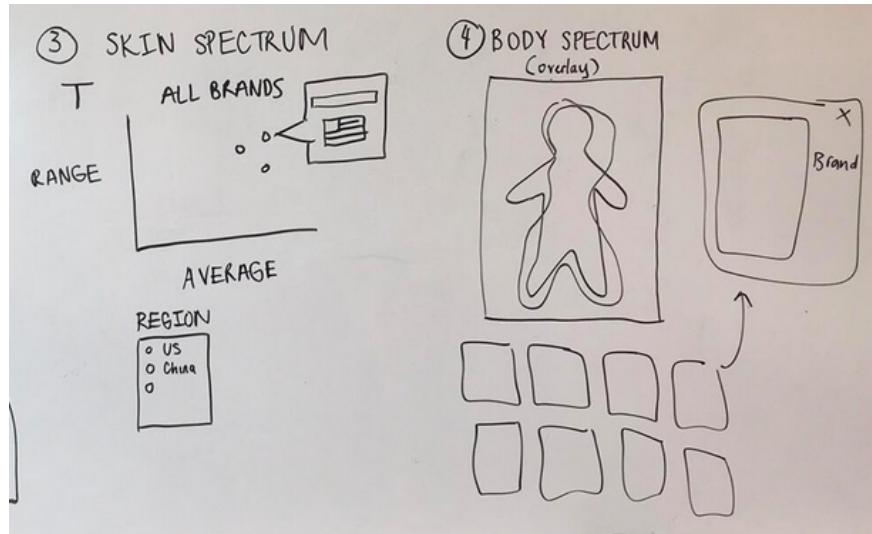 3 SKIN SPECTRUM
T
ALL BRANDS
RANGE
AVERAGE
REGION
US
China
4 BODY SPECTRUM
(overlay)
X
Brand